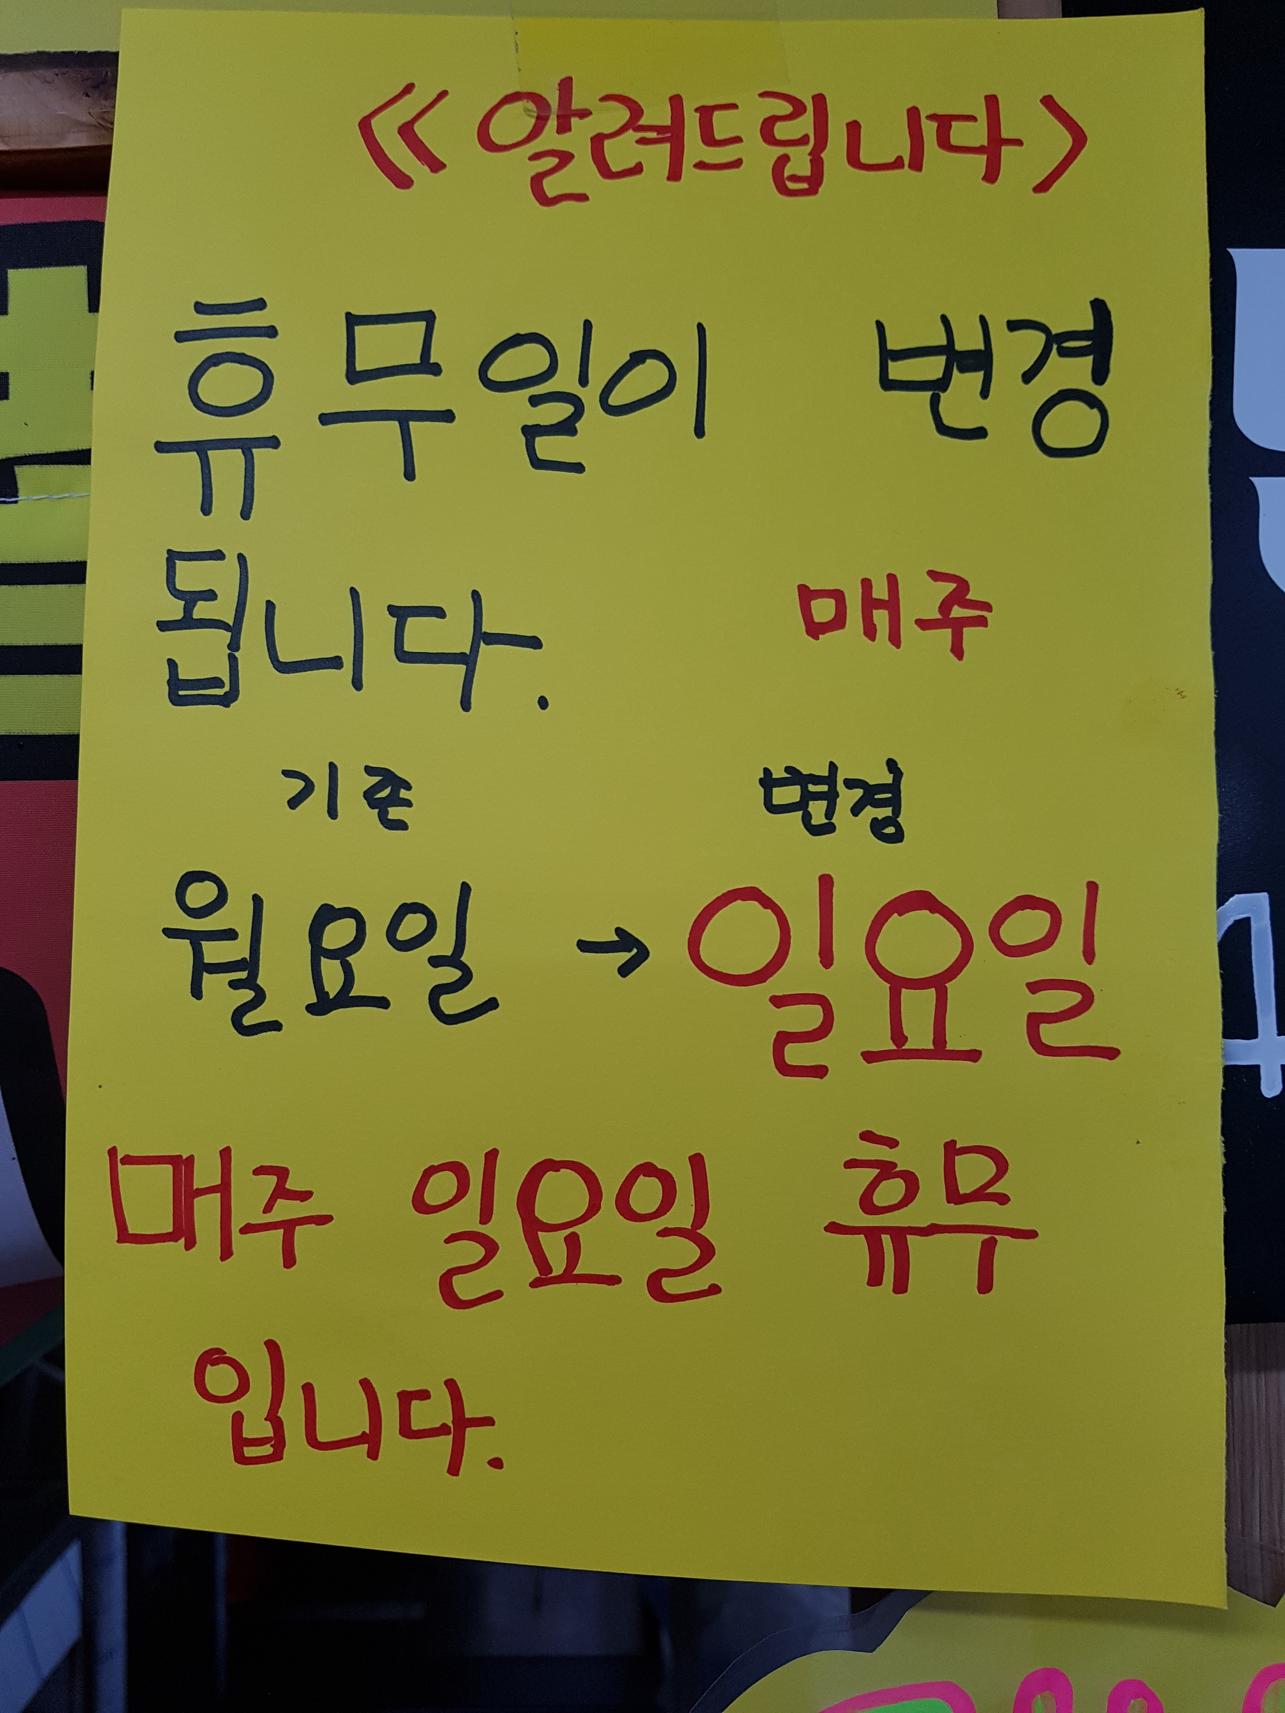 <<알려드립니다>
휴무일이 변경
됩니다. 매주
기존 변경
월요일 → 일요일
매주 일요일 휴무
입니다.